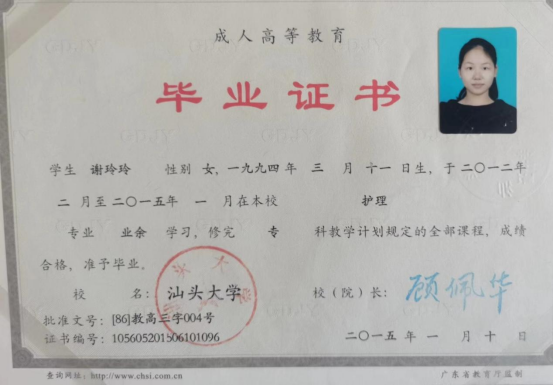 成人高等教育
毕业证书
学生 谢玲玲 性别 女,一九九四年 三 月 六一日生,于二〇一二年
二 月至二〇一五年 一 月在本校 护理
专业 业余 学习,修完 专 科教学计划规定的全部课程,成绩
合格,准予毕业。
校 名: 汕头大学 校(院)长: 顾佩华
批准文号: [86]教高三字004号
证书编号: 105605201506101096 二〇一五年 一 月 十 日
查询网址: http://www.chsi.com.cn 广东省教育厅监制